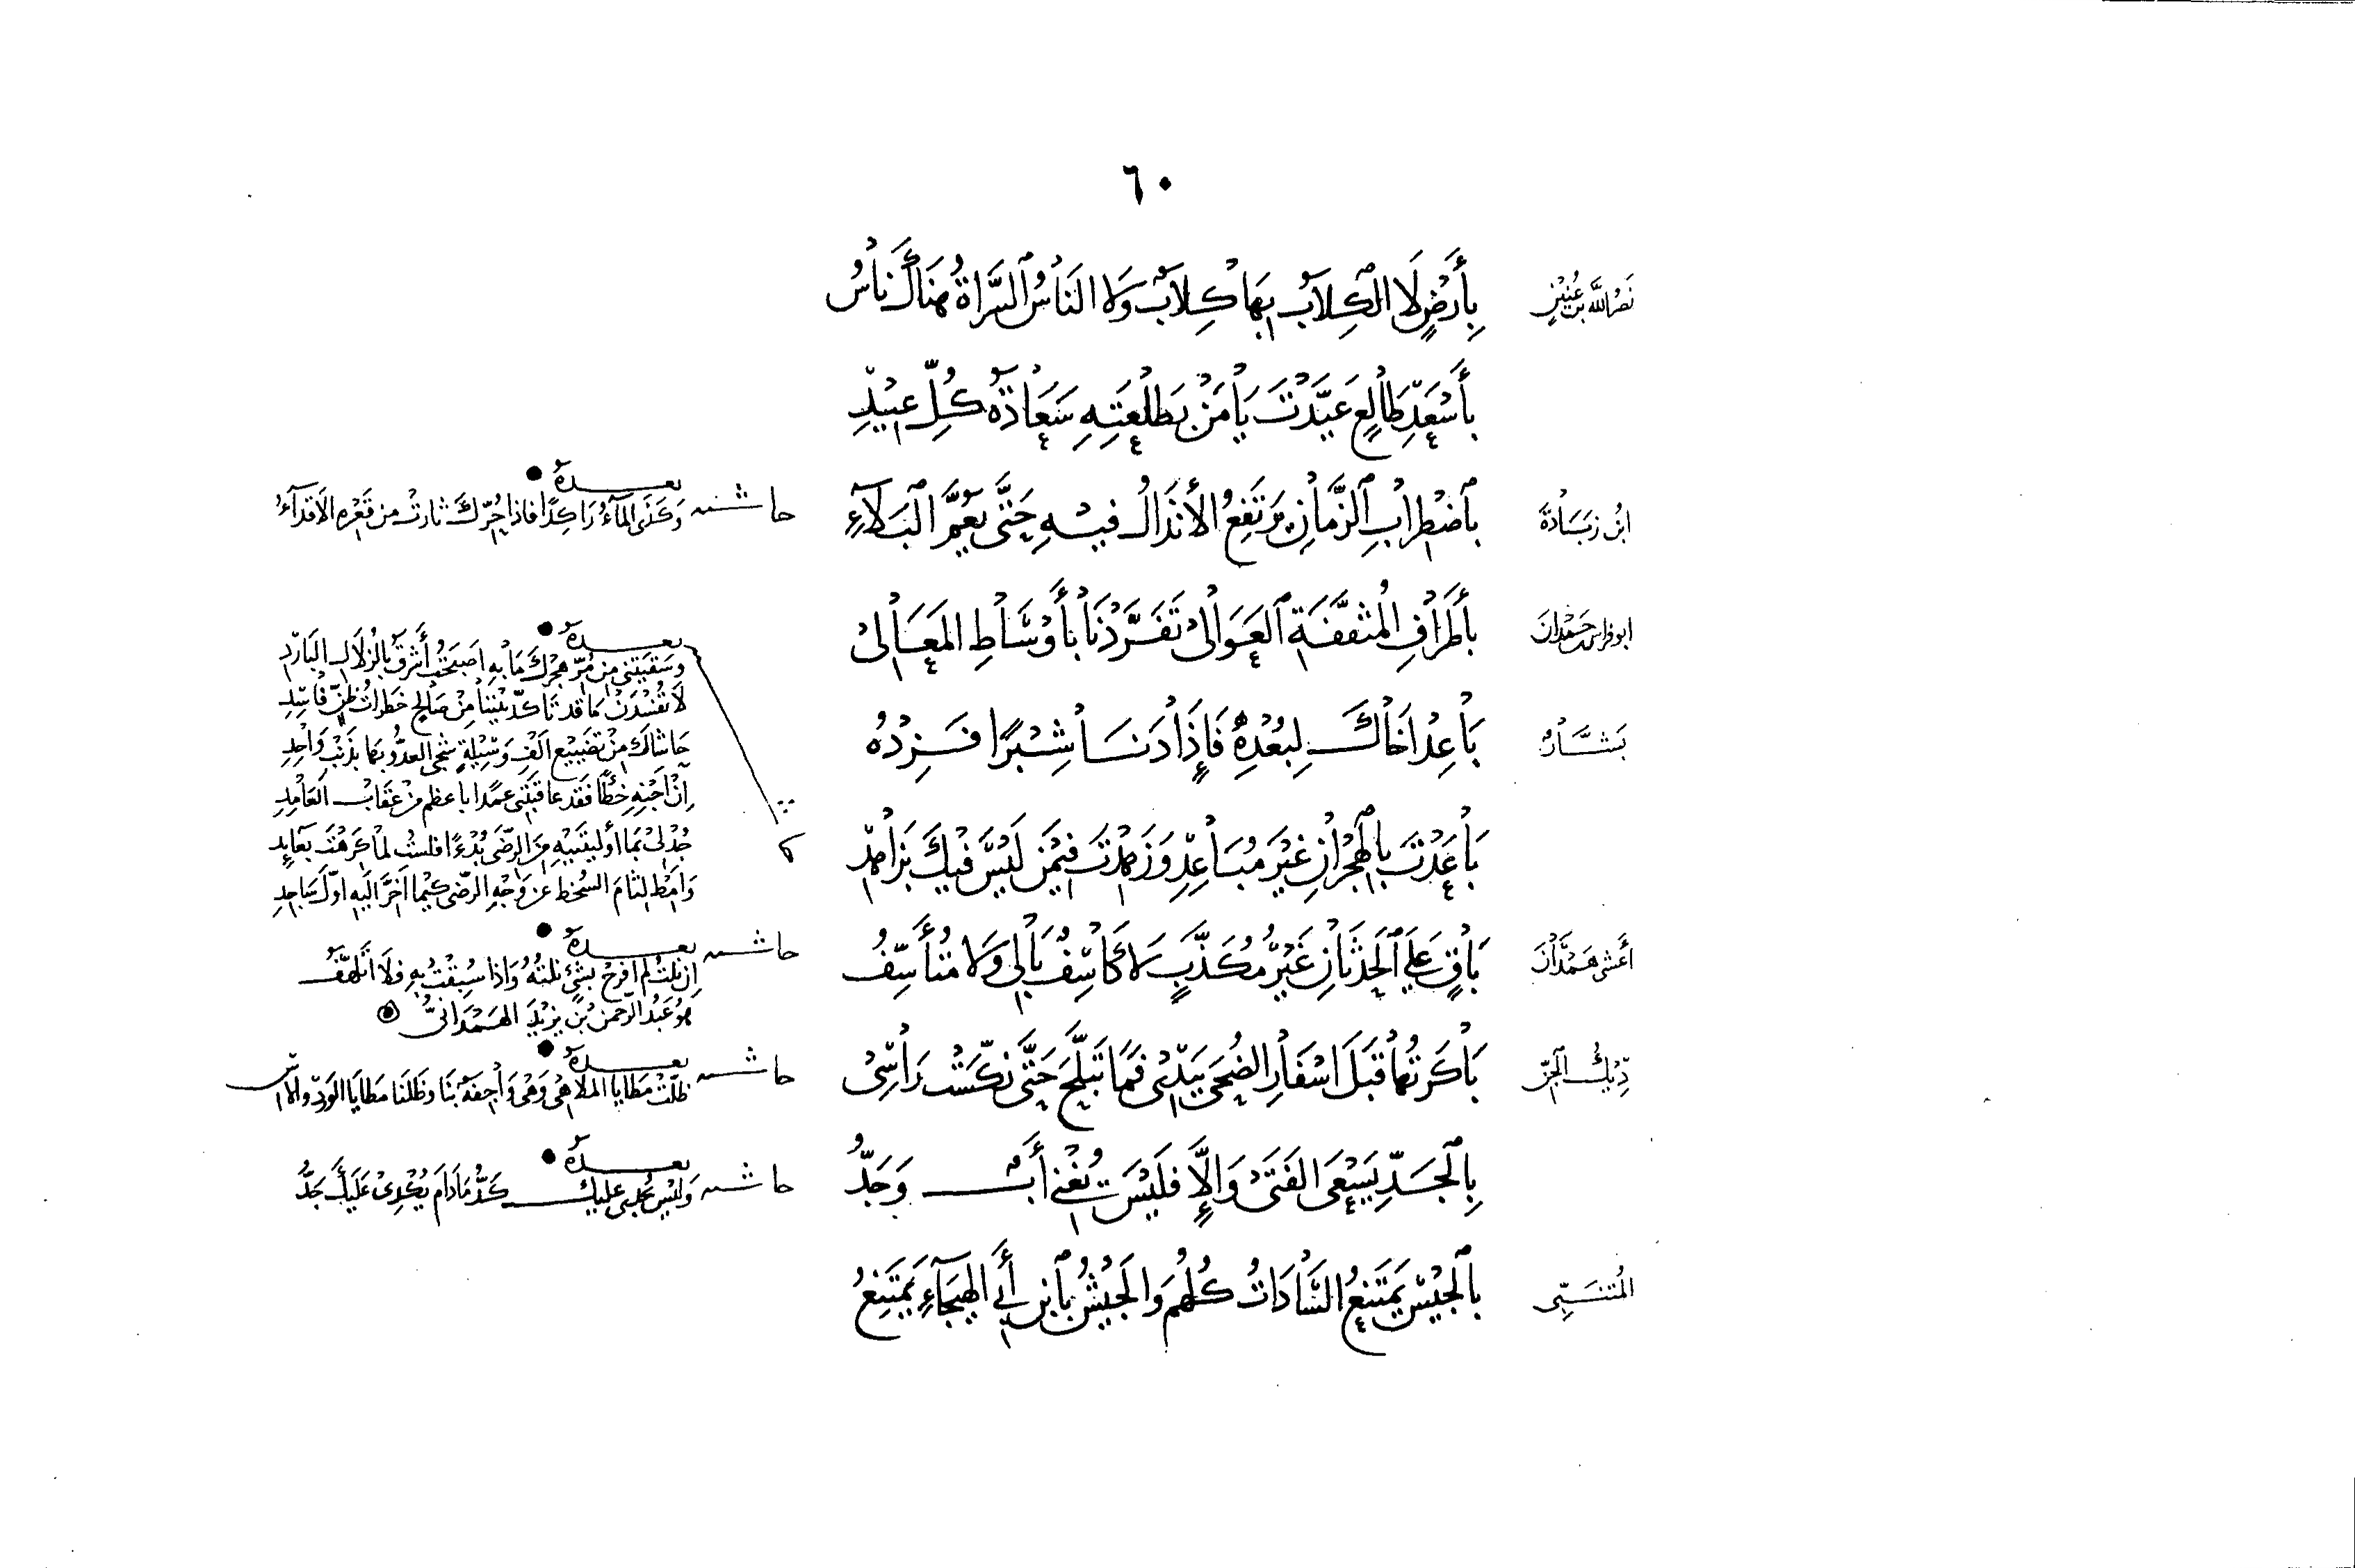 ٦٠
نَصْرُ اللَّه بن عُنَيْنٍ
بِأَرْضٍ لَا الكِلَابُ بِهَا كِلَابٌ وَلَا النَّاسُ السَّرَاةُ هُنَاكَ نَاسُ
بِأَسْعَدِ طَالِعٍ عَيَّدْتَ يَا مَنْ بِطَلْعَتِهِ سَعَادَةُ كُلِّ عِيْدِ
ابْن زَبَادَةَ
بِاضْطِرَابِ الزَّمَانِ يَرْتَفِعُ الأَنْذَالُ فِيْهِ حَتَّى يَعُمَّ البَلَاءُ
حاشية
بعده
وَكَذَى المَآءُ رَاكِدًا فَاذا حُرِّكَ ثَارتْ مِن قَعْرِهِ الأَقْذَآءُ
ابو فراس بن حَمْدَانَ
بِأَطْرَافِ المُثَقَّفَةِ العَوَالِيْ تَفَرَّدْنَا بِأَوْسَاطِ المَعَالِيْ
بَشَّارُ
بَاعِدْ اَخَاكَ لِبُعْدِهِ فَإِذَا دَنَا شِبْرًا فَزِدْهُ
بَاعَدْتَ بِالهِجْرَانِ غَيْرَ مُبَاعِدِ وَزَهِدْتَ فِيْمَنْ لَيْسَ فِيْكَ بِزَاهِدِ
بعده
وسَقَيْتَنِي مِن مُرِّ هَجْرِكَ مَا بِهِ اَصبَحْتُ أَشْرَقُ بِالزُّلَالِ البَارِدِ
لَا تُفْسِدَنْ مَا قد تَأكَّدَ بَيْنَنَا مِنْ صَالِحٍ خَطَراتُ ظَنٍّ فَاسِدِ
حَاشَاكَ مِنْ تَضْيِيْعِ الْفِ وَسِيْلَةٍ شجى العدُوّ بها بِذَنْبٍ وَاحِدِ
اِنْ اَجْنِهِ خَطَأً فَقَد عَاقَبْتَنِي عَمْدًا باعظم مِن عِقَابِ العَامِدِ
جُدْ لِيْ بِمَا أوليتَنِيْهِ مِنَ الرِّضَى بَدْءًا فلستُ لما كَرِهْتَ بِعَائِدِ
وَامِطْ لِثَامَ السُخط عَن وَجْهِ الرِّضى كَيْمَا اَخرَّ اليهِ اوّلَ سَاجِدِ
أَعشى هَمْدَانَ
بَاقٍ عَلَى الحَدَثَانِ غَيْرُ مُكَذَّبٍ لَا كَاسِفٌ بَالِي وَلَا مُتَأَسِّفُ
حاشية
بعده
اِن نِلتُ لم افرَحْ بشَيْءٍ نلتُهُ وَاذا سُبِقْتُ بِهِ فَلَا اَتَلَهَّفُ
هُوَ عَبْدُ الرَّحمنِ بْن يَزِيْدَ الهَمْدَانِيُّ
دِيْكُ الجِنِّ
بَاكَرْتُهَا قَبْلَ اسْفَارِ الضُحَى بِيَدِيْ فَمَا تَبَلَّجَ حَتَّى نَكَّسَتْ رَأْسِيْ
حاشية
بعده
ظلّتْ مَطَايَا المَلَاهِي وَهْيَ وَاجِفَةٌ بنَا وظلنا مطايا الوَردِ والآسِ
بِالجَدِّ يَسْعَى الفَتَى وَإِلَّا فَلَيْسَ يُغْنِي أَبٌ وَجَدُّ
حاشية
بعده
وَليْسَ يُجْدِي عليك كَدُّ مَا دَامَ يُكْدِى عَلَيْكَ جَدُّ
المُتَنَبِّي
بِالجَيْشِ يَمْتَنِعُ السَّادَاتُ كُلُّهُم وَالجَيْشُ بِابْنِ أَبِي الهَيْجَآءِ يَمْتَنِعُ